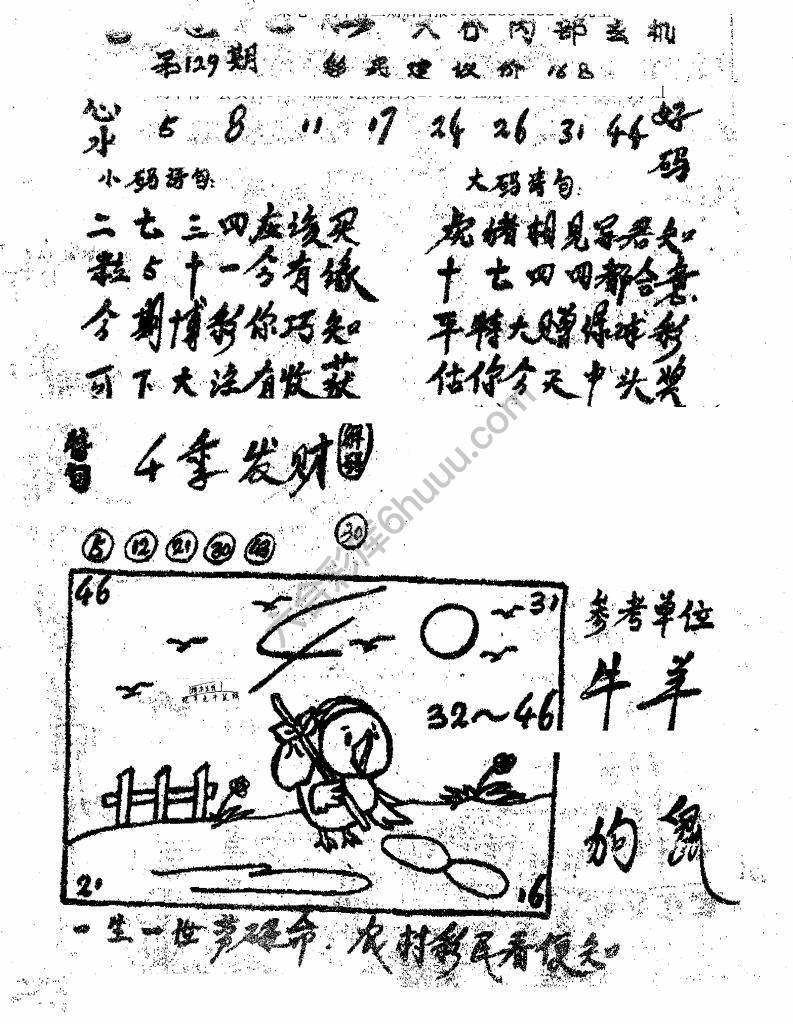 六合内部玄机
第129期 彩民建议价168
心水 5 8 11 17 24 26 31 44 好码
小码诗句: 大码诗句:
二七三四应该买
粒5十一今有缘
今期博彩你巧知
可下大注有收获
虎猪相见早君知
十七四四都合意
平特大赠保球彩
估你今天中头奖
特句 千季发财 解码
5 12 21 30 43 30
46 31
32～46
21 16
参考单位
牛羊
狗兔
一生一世劳碌命.农村彩民看便知
六合彩库6huuu.com